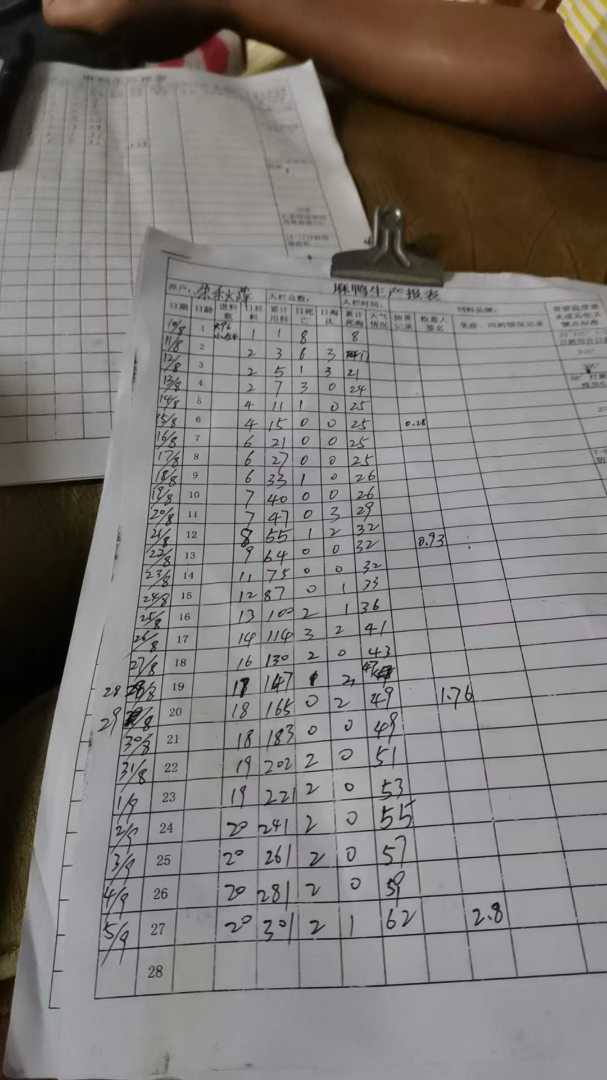 麻鸭生产报表
入栏总数: 入栏时间: 饲料品牌:
日期 日龄 进料数 日耗料 累计用料 日死亡 日淘汰 累计死淘 天气情况 抽重记录
10/8 1 1 1 8 8
11/8 2 2 3 6 3
12/8 3 2 5 1 3 21
13/8 4 2 7 3 0 24
14/8 5 4 11 1 0 25
15/8 6 4 15 0 0 25 0.28
16/8 7 6 21 0 0 25
17/8 8 6 27 0 0 25
18/8 9 6 33 1 0 26
19/8 10 7 40 0 0 26
20/8 11 7 47 0 3 29
21/8 12 8 55 1 2 32
22/8 13 9 64 0 0 32 0.93
23/8 14 11 75 0 0 32
24/8 15 12 87 0 1 33
25/8 16 13 100 2 1 36
26/8 17 14 114 3 2 41
27/8 18 16 130 2 0 43
28 /8 19 17 147 2 47
29 /8 20 18 165 0 2 49 1.76
30/8 21 18 183 0 0 49
31/8 22 19 202 2 0 51
1/9 23 19 221 2 0 53
2/9 24 20 241 2 0 55
3/9 25 20 261 2 0 57
4/9 26 20 281 2 0 59
5/9 27 20 301 2 1 62 2.8
28